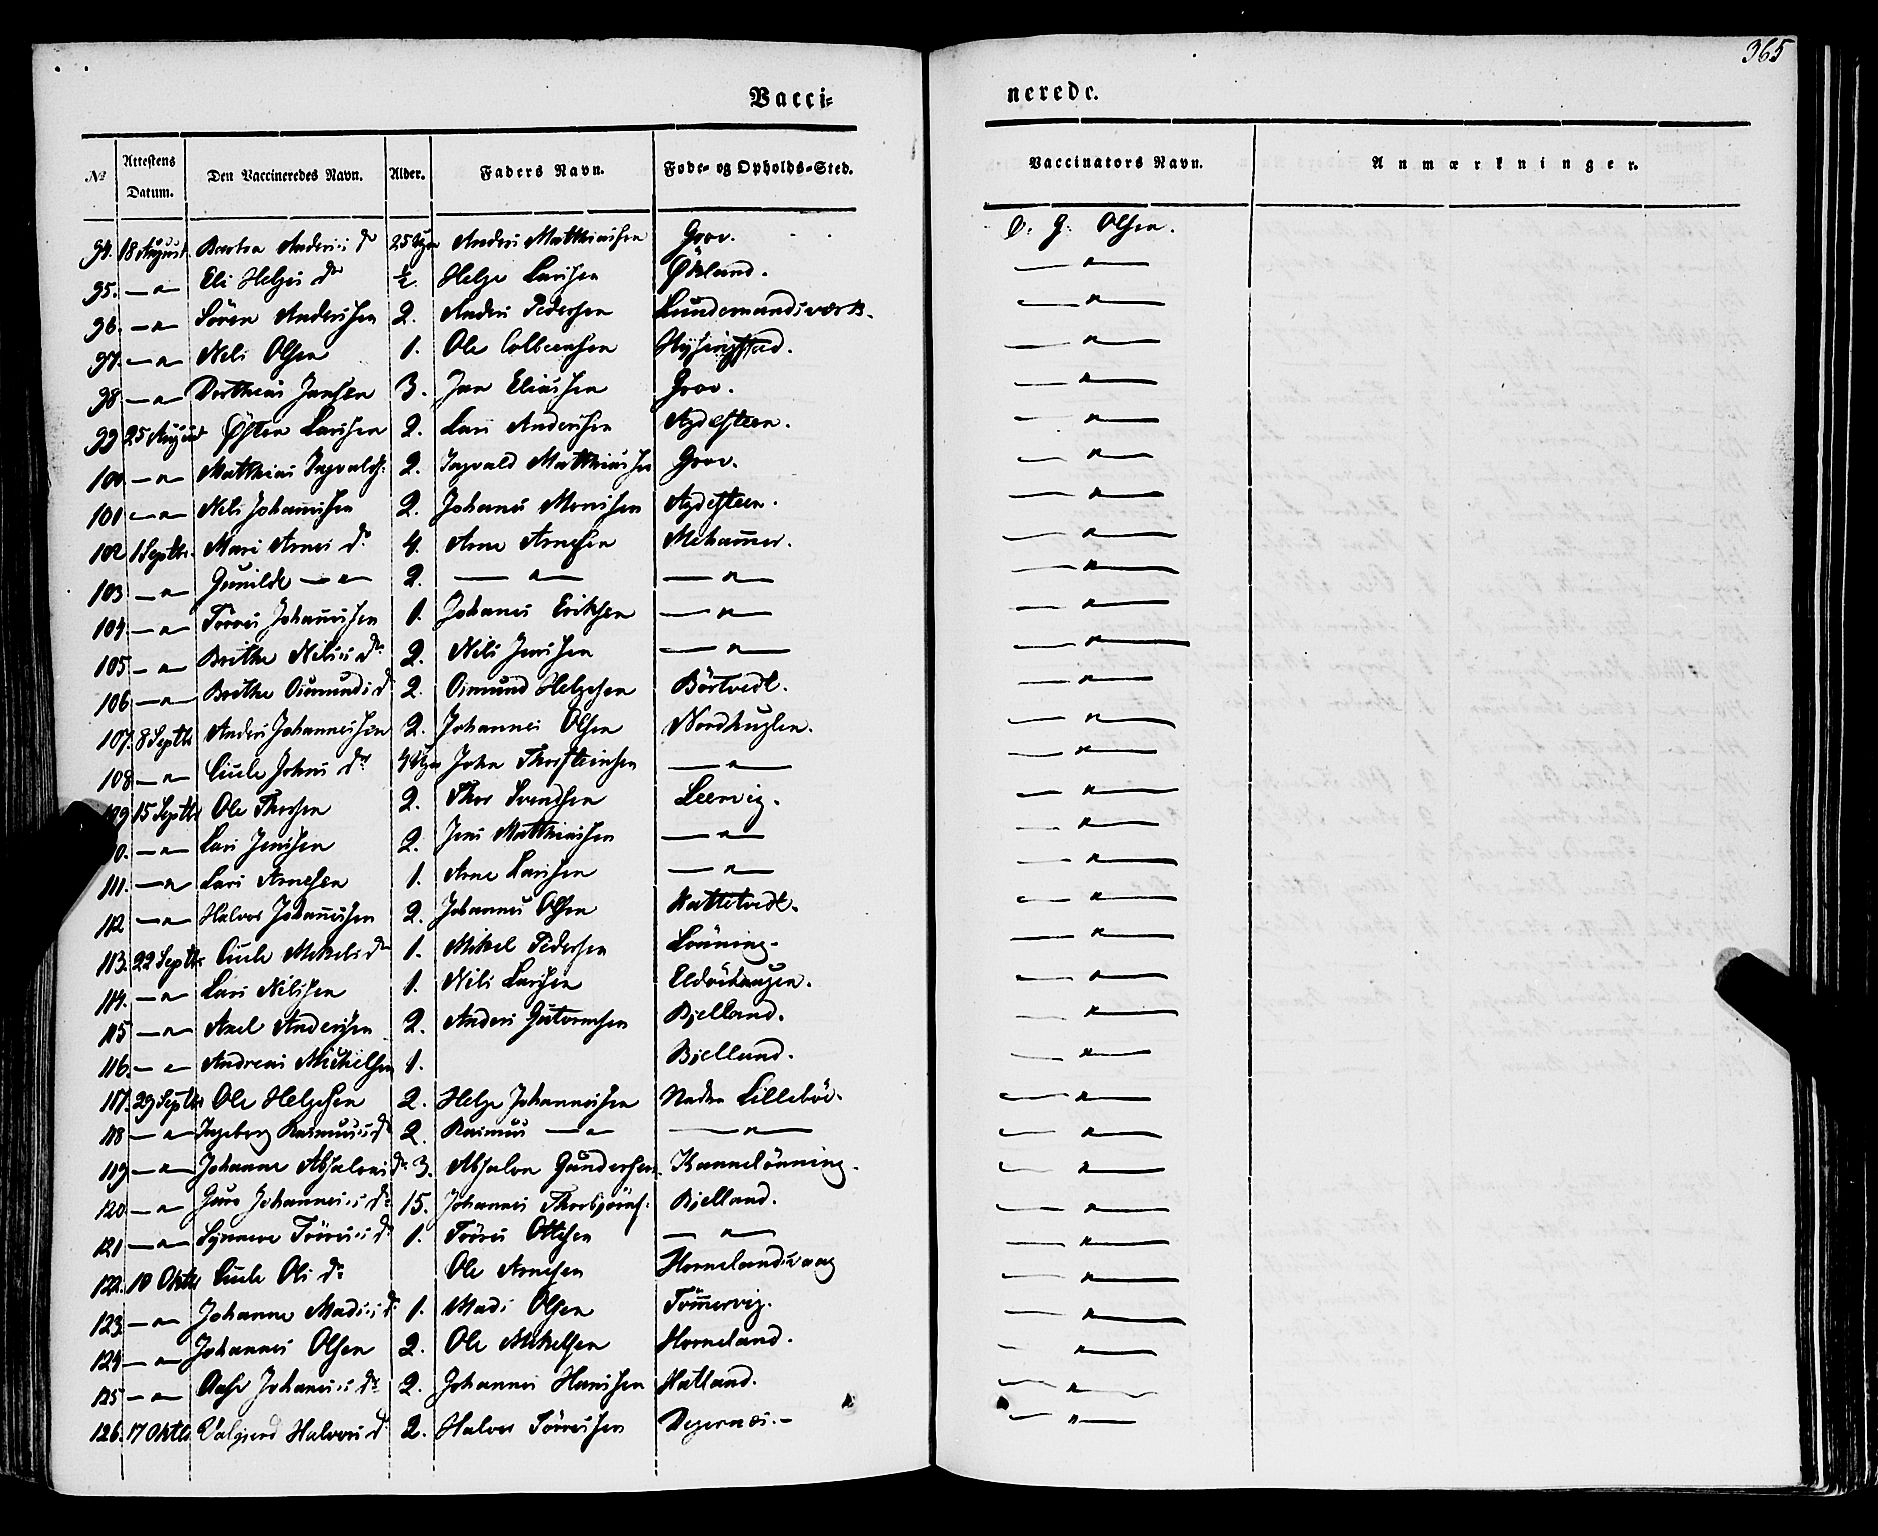 365
Vacci-
nerede.
№ Attestens Datum. Den Vaccineredes Navn. Alder. Faders Navn. Føde- og Opholds-Sted. Vaccinators Navn. Anmærkninger.
94. 18 August Anders d 25 Anders Matthiasen Grov. G. Olsen.
95. — " — Eli Helges dr ½. Helge Larsen Økland. — " —
96. — " — Sören Andersen 2. Anders Pedersen Lundemandsværk. — " —
97. — " — Nels Olsen 1. Ole — " —
98 — " — Dortheus Jansen 3. Jan Eliassen Grov. — " —
99 25 August Østen Larsen 2. Lars Andersen Agdesteen. — " —
100 — " — Matthias Ingvalds. 2. Ingvald Matthiassen Grov. — " —
101 — " — Nels Johannsen 2. Johans Monsen Agdesteen. — " —
102 1 Septbr. Mari Arnes d. 4. Arne Arnesen Mehammer. — " —
103 — " — Gunilde — " — 2. — " — — " — — " —
104. — " — Törres Johannsen 1. Johanes Eriksen — " — — " —
105 — " — Brithe Nels's dr 2. Nels Jensen — " — — " —
106 — " — Brithe Osmunds d 2. Osmund Helgesen Börtvedt. — " —
107. 8 Septbr Anders Johannessen 2. Johannes Olsen Nordhuglen. — " —
108 — " — Cicele Johns dr 4 John Thorsteinsen — " — — " —
109 15 Septbr Ole Thorsen 2. Thor Svendsen Leervig. — " —
0. — " — Lars Jensen 2. Jens Matthiasen — " — — " —
111. — " — Lars Arnesen 1. Arne Larsen — " — — " —
112 — " — Halvor Johannsen 2. Johannes Olsen Hattetvedt. — " —
113. 22 Septbr Cicele Mikels dr 1. Mikel Pedersen Lönning. — " —
114. — " — Lars Nilsen 1. Nils Larsen Eldöehaugen. — " —
115 — " — Axel Andersen 2. Anders Guttormsen Bjelland. — " —
116. — " — Andreas Michelsen 1. Bjelland. — " —
117. 29 Septbr Ole Helgesen 2. Helge Johannessen Nedre Lilleböe. — " —
118 — " — Ingeborg Rasmus's d. 2. Rasmus — " — — " — — " —
119 — " — Johanne Absalons dr 3. Absalon Gundersen Kannelönning. — " —
120 — " — Guro Johannes's dr 15. Johannes Thorbjörns. Bjelland. — " —
121 — " — Synneve Törres's dr 1. Törres Ottesen — " — — " —
122. 10 Oktbr Cicele Ols dr Ole Arnesen Hornelandsvaag — " —
123 — " — Johanne Mads's d. 1. Mads Olsen Tömmervig. — " —
124 — " — Johannes Olsen 2. Ole Mikelsen Horneland. — " —
125 — " — Johannes's dr 2. Johannes Hansen Hatland. — " —
126. 17 Oktbr Valgjerd Halvors d 2. Halvor Törresen Degernæs. — " —